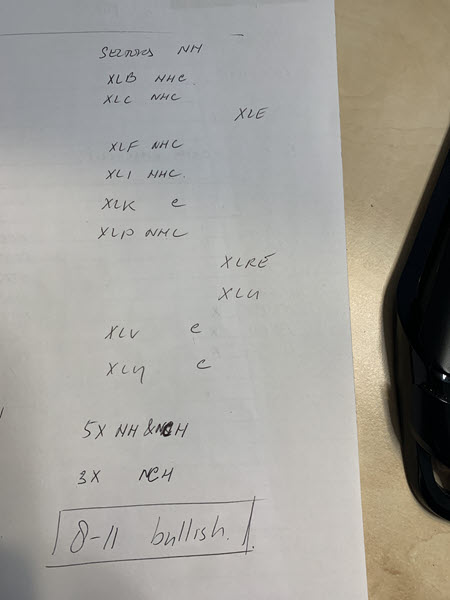 SECTORS NH
XLB NHC
XLC NHC
XLE
XLF NHC
XLI NHC.
XLK C
XLP NHC
XLRE
XLU
XLV C
XLY C
5X NH & NCH
3X NCH
8-11 bullish.